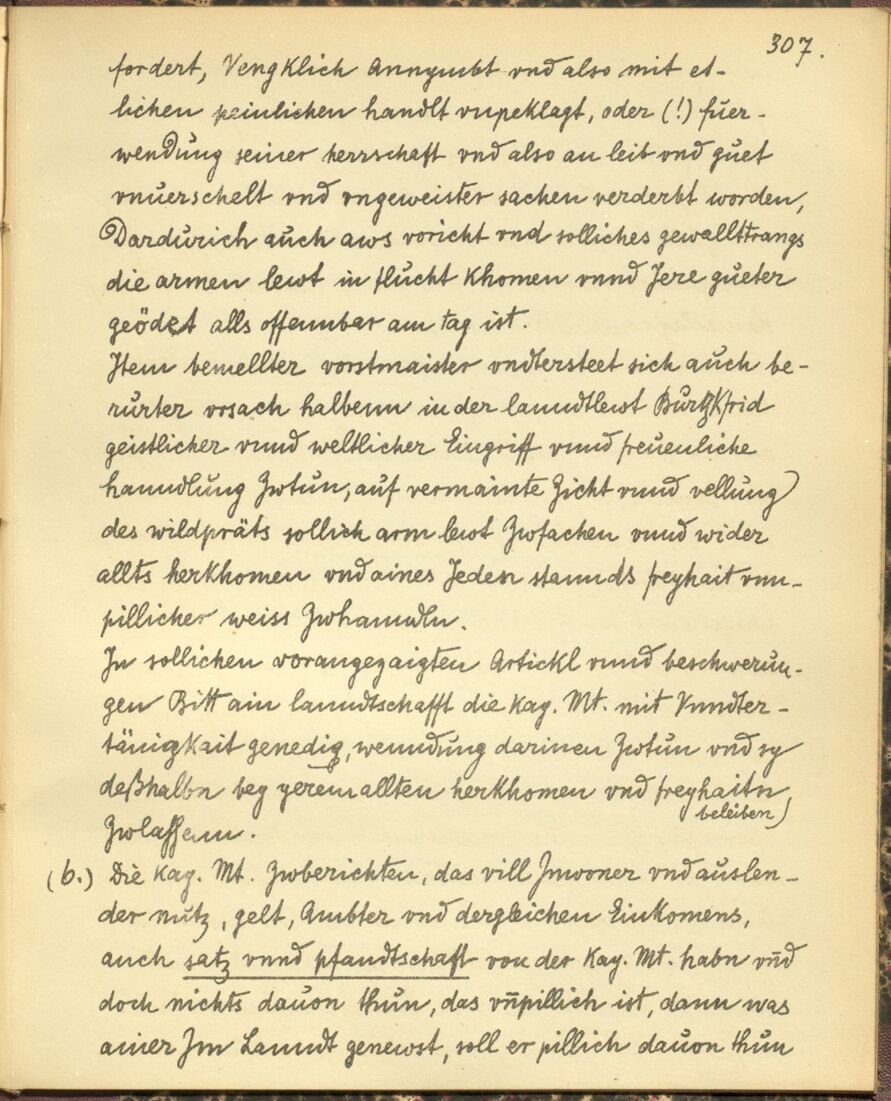 307.
fordert, Vengklich Annymbt vnd also mit et-
lichen peinlichen handlt vnpeklagt, oder (!) füer-
wendung seiner herrschaft vnd also an leib vnd guet
vnuerschelt vnd vngeweister sachen verderbt worden,
Dardurich auch aws voricht vnd solliches gewallttrangs
die armen lewt in flucht khomen vnnd Jere gueter
geödet alls offennbar am tag ist.
Item bemellter vorstmaister vndtersteet sich auch be-
rurter vrsach halbenn in der lanndtlewt Burgkfrid
geistlicher vnnd weltlicher Eingriff vnnd freuenliche
hanndlung Zwtun, auf vermainte Zicht vnnd vellung
des wildpräts sollich arm lewt Zwfachen vnnd wider
allts herkhomen vnd aines Jeden stannds freyhait vnn-
pillicher weiss Zwhanndln.
In sollichen vorangezaigten Artickl vnnd beschwerun-
gen Bitt ain lanndtschafft die Kay. Mt. mit Vnndter-
tänigkait genedig, wenndung darinen Zwtun vnd sy
deßhalbn bey yerem allten herkhomen vnd freyhaitn
beleiben
Zwlassenn.
(6.) Die Kay. Mt. Zwberichten, das vill Jnwoner vnd auslen-
der nutz, gelt, Ambter vnd dergleichen Einkomens,
auch satz vnnd pfandtschaft von der Kay. Mt. habn vnd
doch nichts dauon thun, das vnpillich ist, dann was
ainer Jm Lanndt genewst, soll er pillich dauon thun